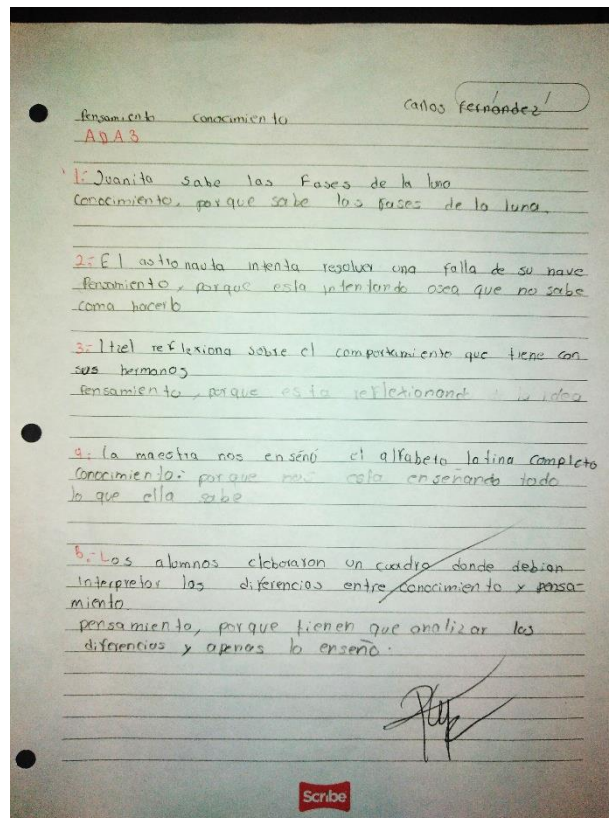 Carlos Fernández
Pensamiento conocimiento
ADA3
1.- Juanito sabe las Fases de la luna
Conocimiento, porque sabe las fases de la luna.
2.- El astronauta intenta resolver una falla de su nave
Pensamiento, porque esta intentando osea que no sabe
como hacerlo
3.- Itiel reflexiona sobre el comportamiento que tiene con
sus hermanos
Pensamiento, porque esta reflexionando idea
4.- La maestra nos enseñó el alfabeto latino completo
Conocimiento. porque nos esta enseñando todo
lo que ella sabe
5.- Los alumnos elaboraron un cuadro donde debian
interpretar las diferencias entre conocimiento y pensa-
miento
pensamiento, porque tienen que analizar las
diferencias y apenas lo enseño.
Scribe